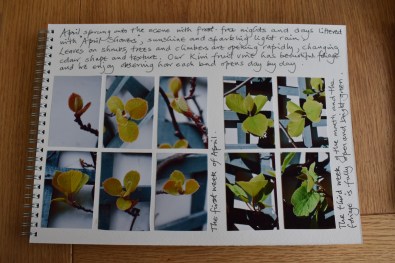 April sprung into the scene with frost-free nights and days littered
with 'April Showers', sunshine and sparkling light rain!
Leaves on shrubs, trees and climbers are opening rapidly, changing
colour, shape and texture. Our Kiwi fruit vine has beautiful foliage
and we enjoy observing how each bud opens day by day.
The first week of April.
The third week of the month and the
foliage is fully open and bright green.